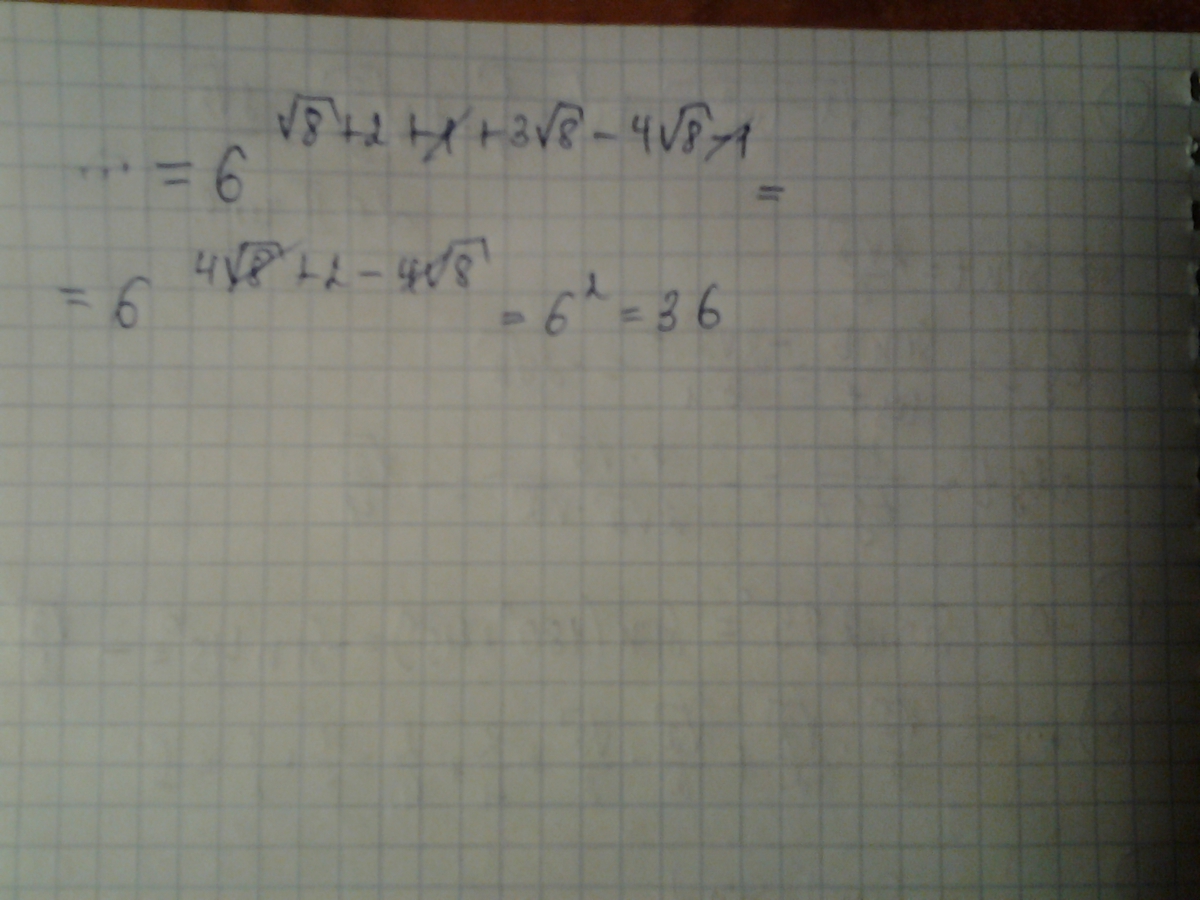 ... = 6^{√8 + 2 + 1 + 3√8 - 4√8 - 1} =
= 6^{4√8 + 2 - 4√8} = 6^2 = 36